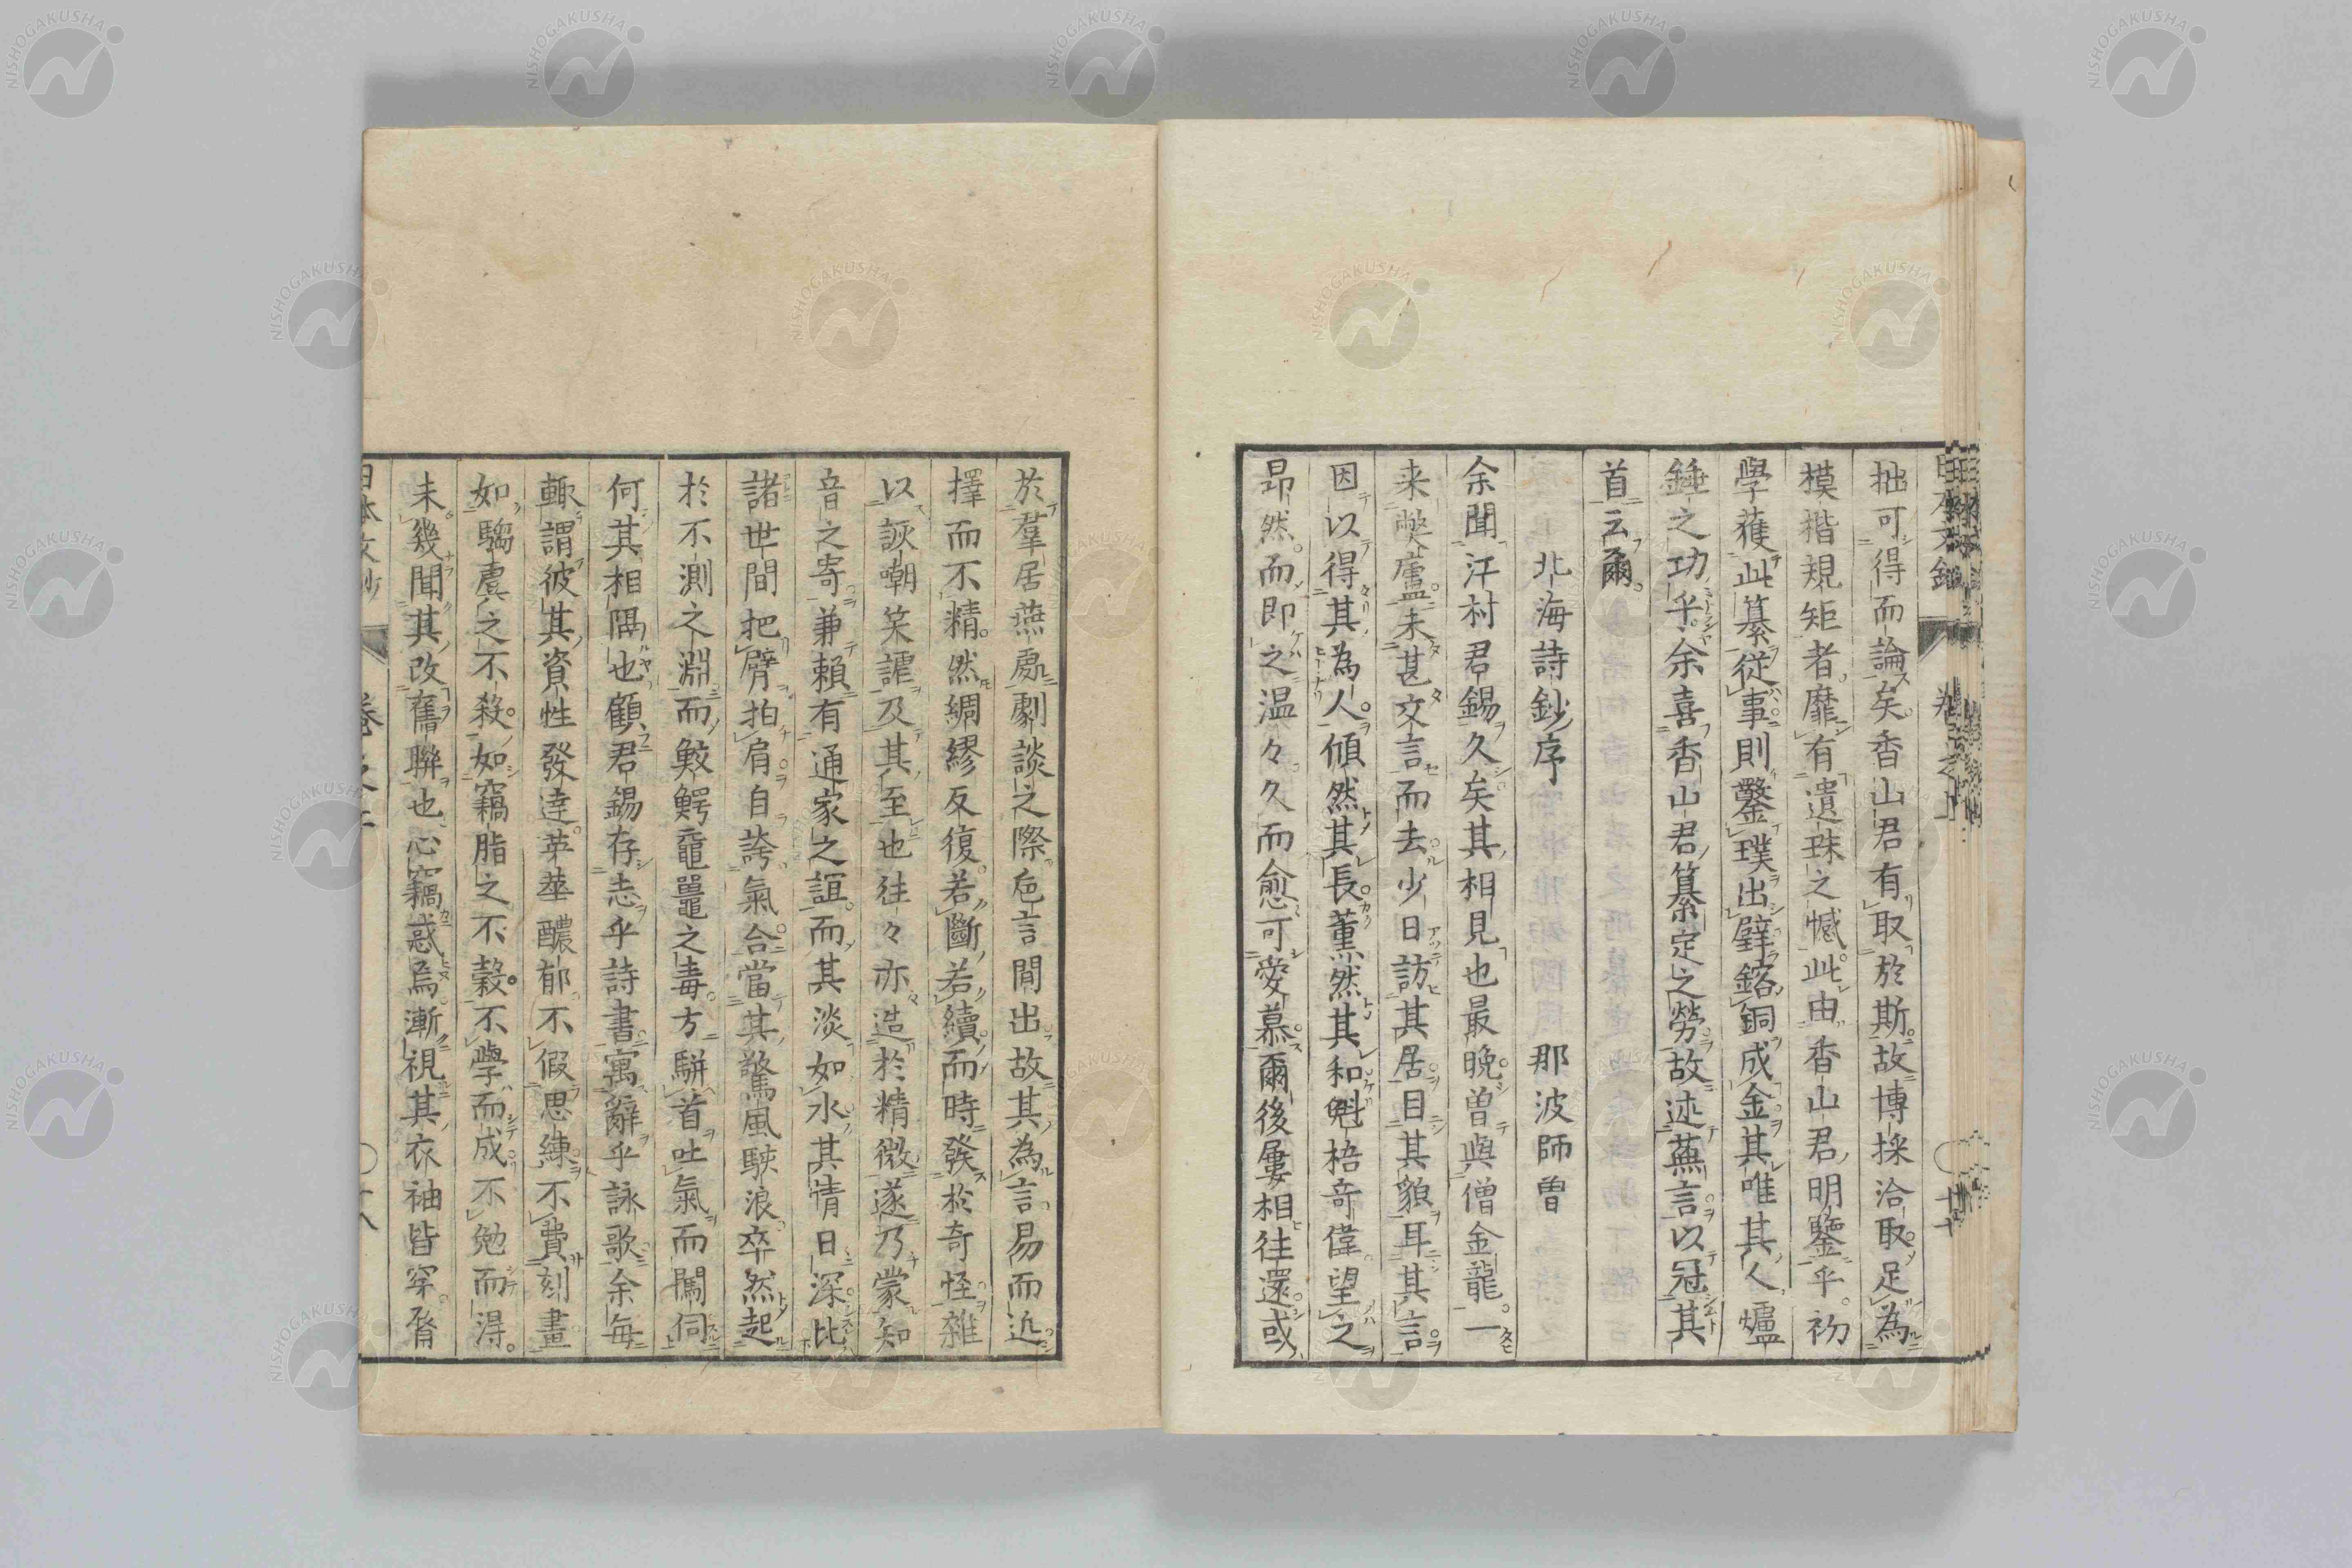 拙可得而論矣香山君有取於斯故博採洽取足為
模楷規矩者靡有遺珠之憾此由香山君明鑒乎初
學獲此纂從事則鑿璞出璧鎔銅成金其唯其人爐
錘之功乎余喜香山君纂定之勞故述蕪言以冠其
首云爾
北海詩鈔序 那波師曽
余聞江村君錫久矣其相見也最晚曽與僧金龍一
来弊廬未甚交言而去少日訪其居目其貌耳其言
因以得其為人傾然其長薫然其和魁梧奇偉望之
昂然而即之温々久而愈可愛慕爾後屢相往還或
於羣居燕處劇談之際卮言間出故其為言易而近
擇而不精然綢繆反復若斷若續而時發於奇怪雜
以詼嘲笑謔及其至也往々亦造於精微遂乃蒙知
音之寄兼賴有通家之誼而其淡如水其情日深比
諸世間把臂拍肩自誇氣合當其驚風駭浪卒然起
於不測之淵而鮫鰐黿鼉之毒方駢首吐氣而闖伺
何其相隅也顧君錫存志乎詩書寓辭乎詠歌余毎
輙謂彼其資性發達英華醲郁不假思練不費刻畫
如騶虞之不殺如竊脂之不穀不學而成不勉而得
未幾聞其改舊聯也心竊惑焉漸視其衣袖皆穿脊
日本文鈔 卷之上
NISHOGAKUSHA